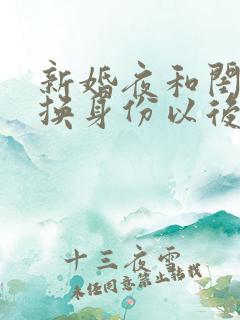 新婚夜和闺
换身份以後
十三夜雪
未经同意禁止转载